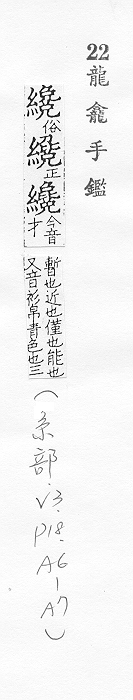 22龍龕手鑑
纔俗纔正纔今音才
暫也近也僅也能也
又音衫帛青色也三
(糸部.V3.P18.A6-A7)